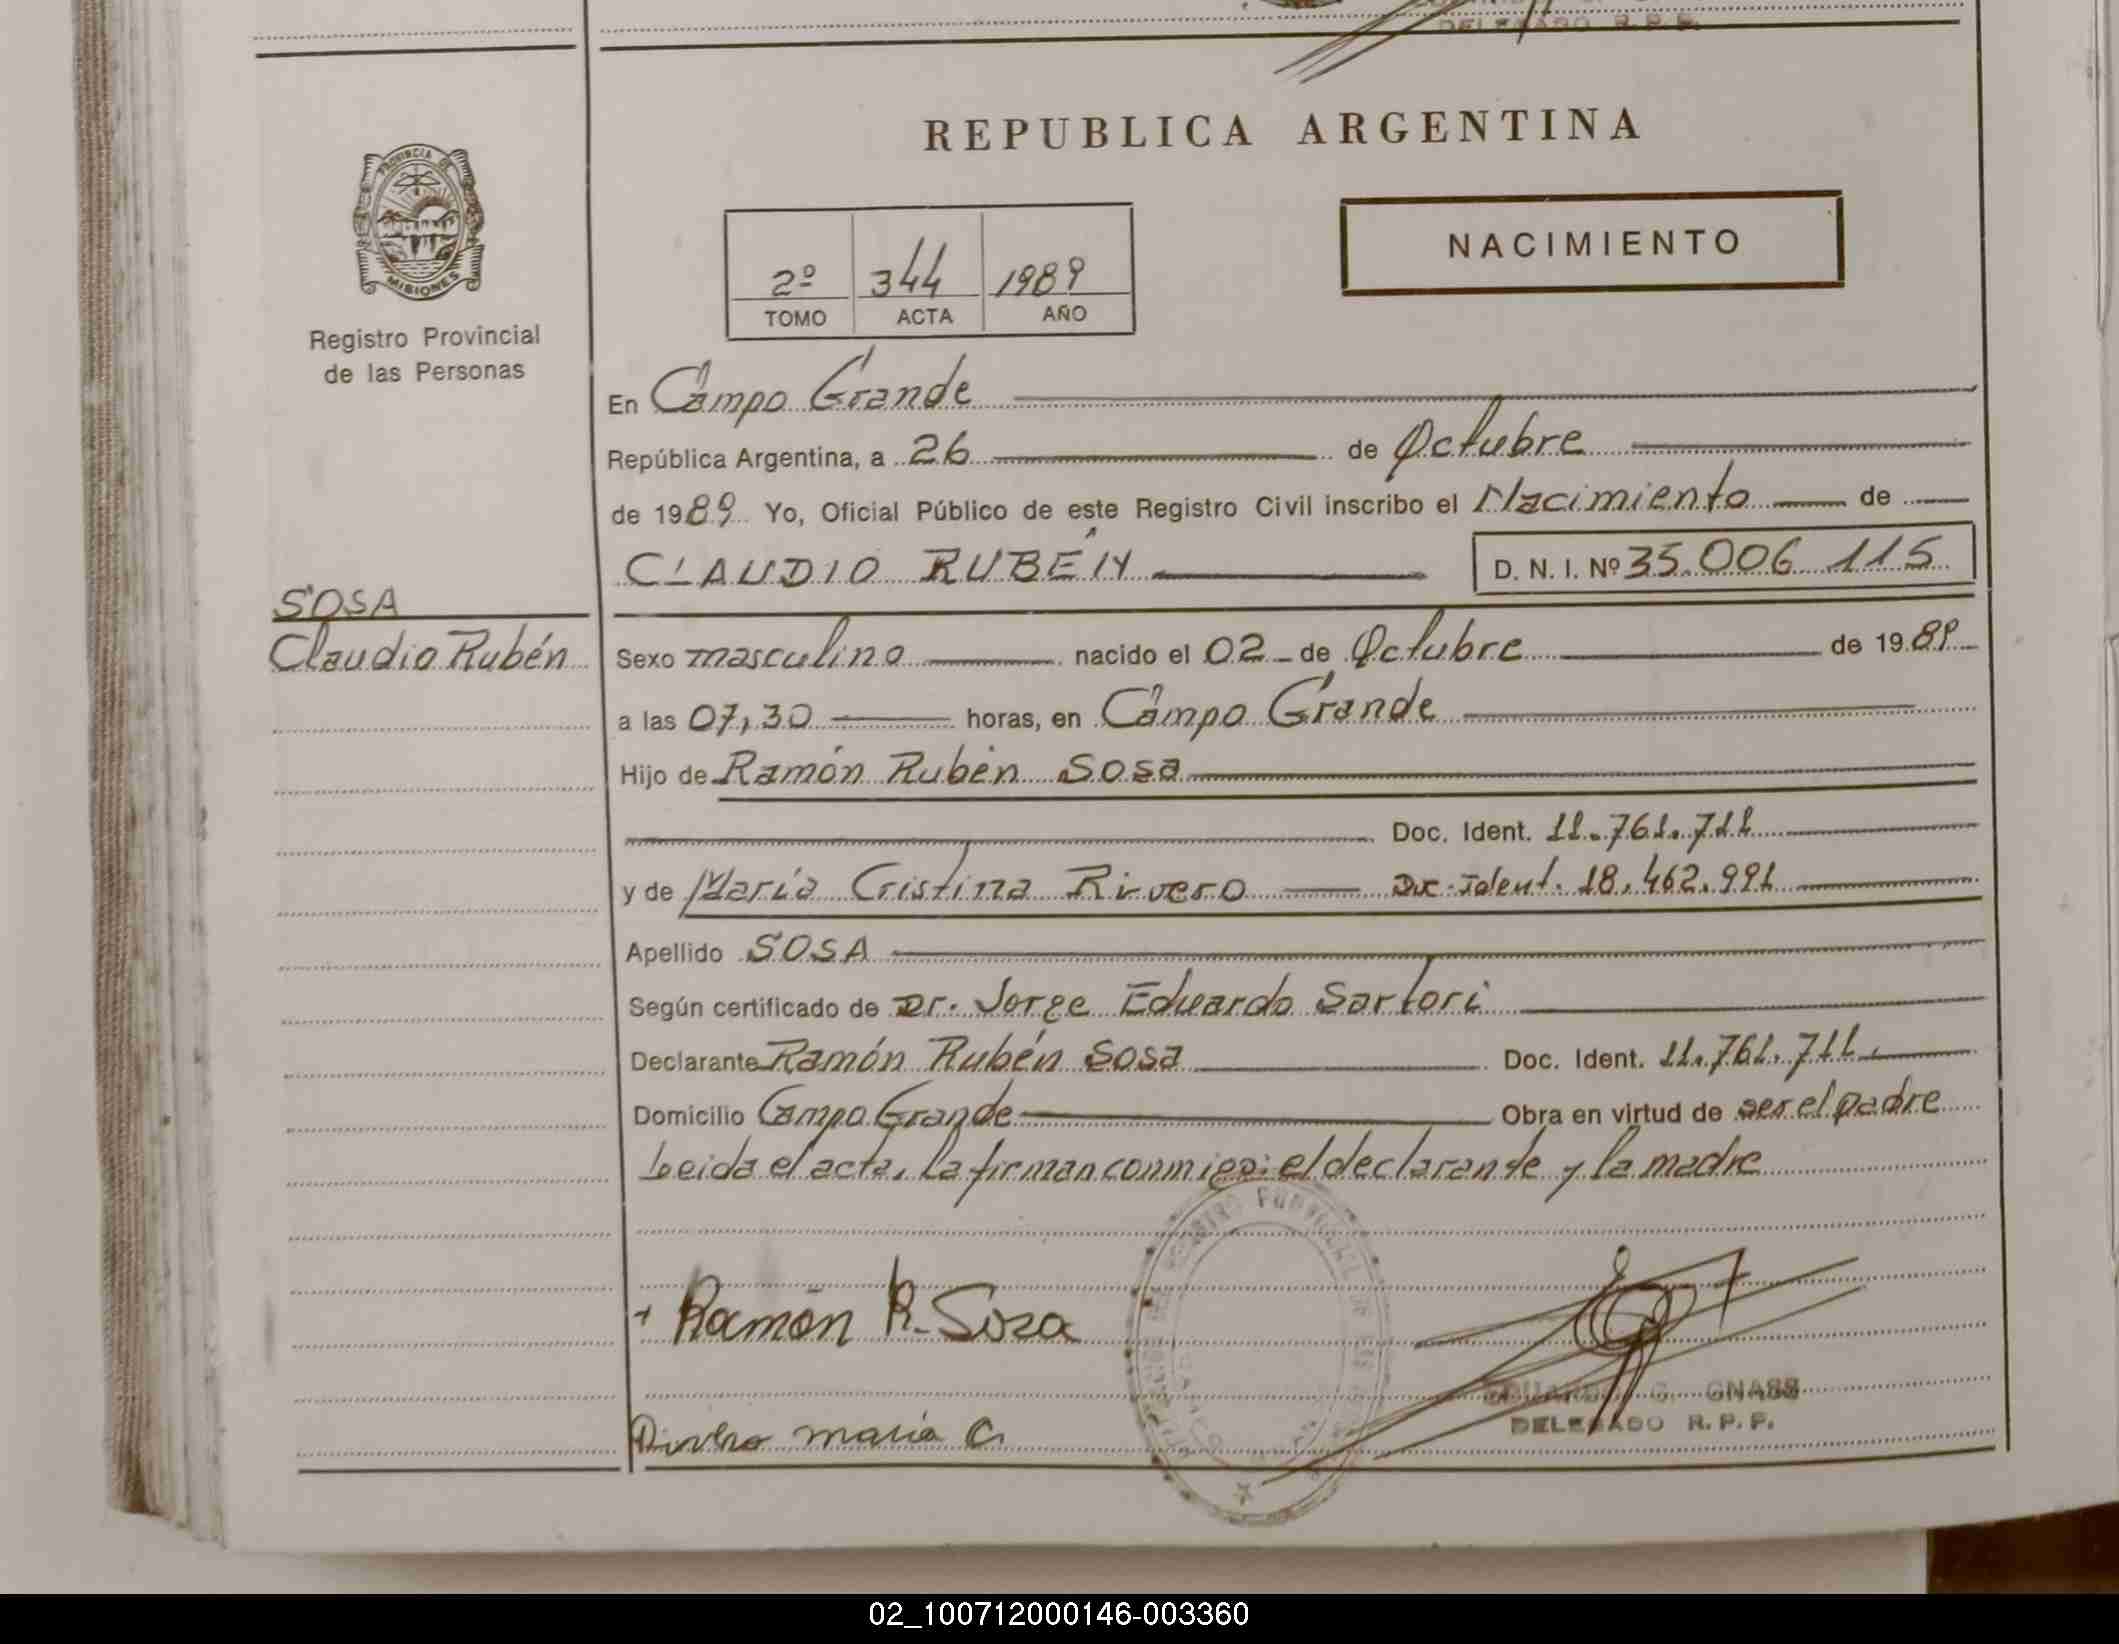 DELEGADO R.P.P.
REPUBLICA ARGENTINA
PROVINCIA DE
MISIONES
Registro Provincial
de las Personas
NACIMIENTO
2º 344 1989
TOMO ACTA AÑO
En Campo Grande
República Argentina, a 26 de Octubre
de 1989 Yo, Oficial Público de este Registro Civil inscribo el Nacimiento de
CLAUDIO RUBÉN D. N. I. Nº 35.006.115
SOSA
Claudio Rubén
Sexo masculino nacido el 02 de Octubre de 1989
a las 07,30 horas, en Campo Grande
Hijo de Ramón Rubén Sosa
Doc. Ident. 11.761.711
y de María Cristina Rivero Doc. Ident. 18.462.991
Apellido SOSA
Según certificado de Dr. Jorge Eduardo Sartori
Declarante Ramón Rubén Sosa Doc. Ident. 11.761.711.
Domicilio Campo Grande Obra en virtud de ser el padre
Leida el acta, la firman conmigo: el declarante y la madre
Ramón R. Sosa
EDUARDO C. GNASS
DELEGADO R.P.P.
maria C
02_100712000146-003360